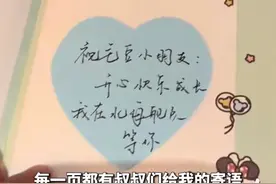 祝毛豆小朋友:
开心快乐成长
我在北海舰队
等你
每一页都有叔叔们给我的寄语